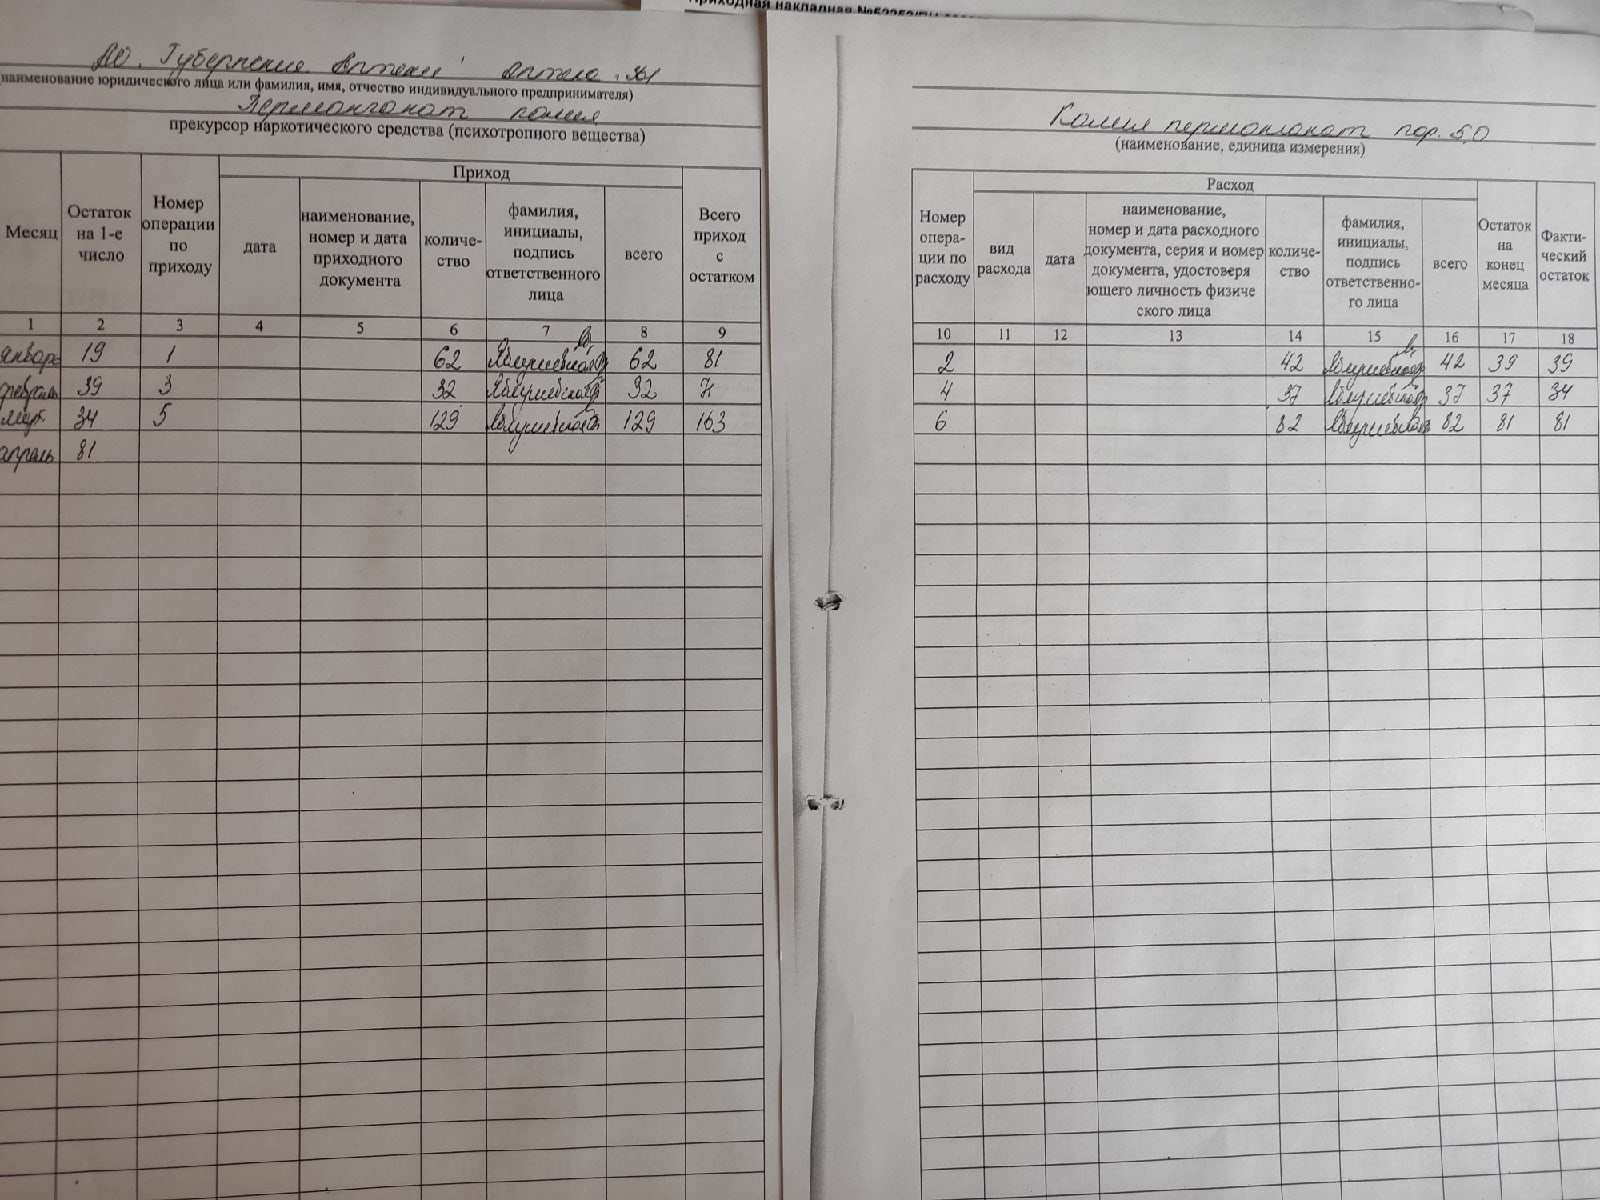 Приходная накладная
АО. Губернские Аптеки Аптека
(наименование юридического лица или фамилия, имя, отчество индивидуального предпринимателя)
Перманганат калия
прекурсор наркотического средства (психотропного вещества)
Приход
Месяц
Остаток
на 1-е
число
Номер
операции
по
приходу
дата
наименование,
номер и дата
приходного
документа
количе-
ство
фамилия,
инициалы,
подпись
ответственного
лица
всего
Всего
приход
с
остатком
1 2 3 4 5 6 7 8 9
январь 19 1 62 62 81
февраль 39 3 32 32 71
март 34 5 129 129 163
апрель 81
Калия перманганат пор. 5,0
(наименование, единица измерения)
Расход
Номер
опера-
ции по
расходу
вид
расхода
дата
наименование,
номер и дата расходного
документа, серия и номер
документа, удостоверя
ющего личность физиче
ского лица
количе-
ство
фамилия,
инициалы,
подпись
ответственно-
го лица
всего
Остаток
на
конец
месяца
Факти-
ческий
остаток
10 11 12 13 14 15 16 17 18
2 42 42 39 39
4 37 37 37 34
6 82 82 81 81